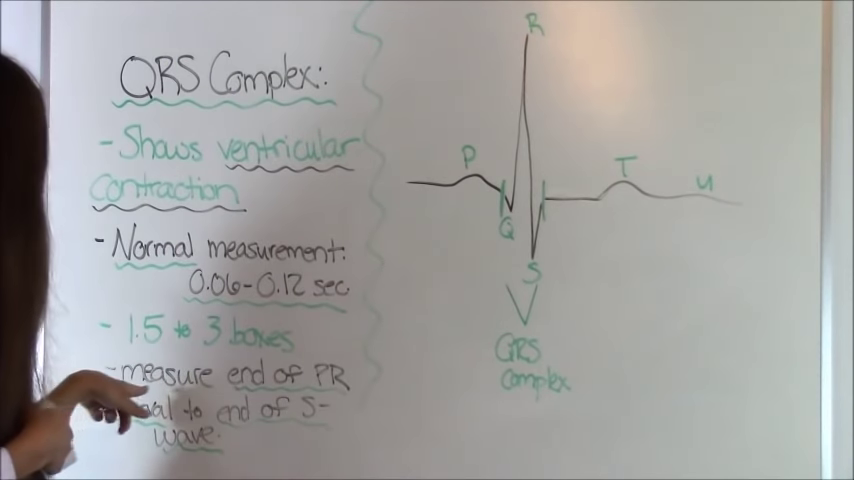 QRS Complex:
- Shows ventricular
contraction
- Normal measurement:
0.06-0.12 sec.
- 1.5 to 3 boxes
- measure end of PR
to end of S-
wave.
R
P
Q
S
T
U
QRS
Complex